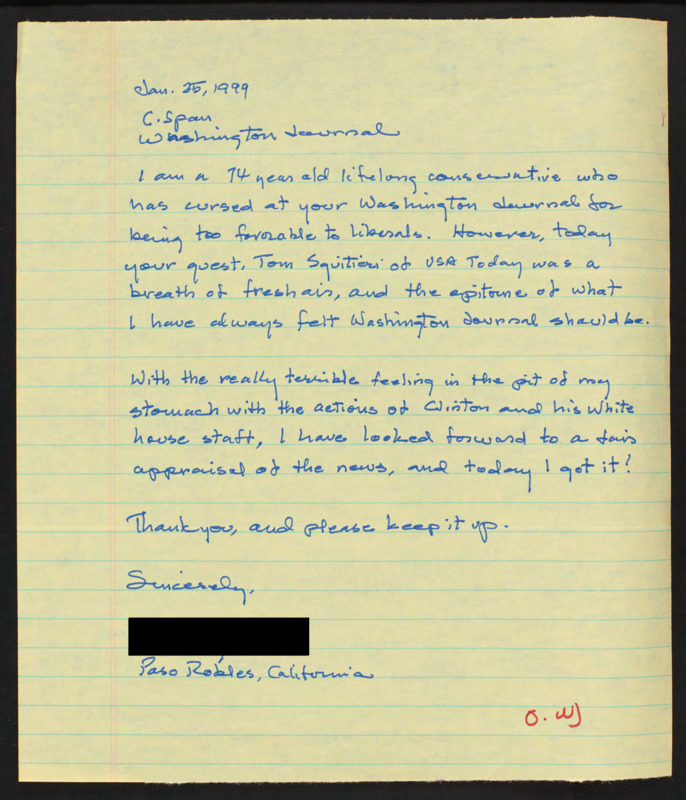 Jan. 25, 1999
C. Span
Washington Journal
I am a 74 year old lifelong conservative who
has cursed at your Washington Journal for
being too favorable to liberals. However, today
your guest, Tom Squitieri of USA Today was a
breath of fresh air, and the epitome of what
I have always felt Washington Journal should be.
With the really terrible feeling in the pit of my
stomach with the actions of Clinton and his White
house staff, I have looked forward to a fair
appraisal of the news, and today I got it!
Thank you, and please keep it up.
Sincerely,
Paso Robles, California
O. WJ